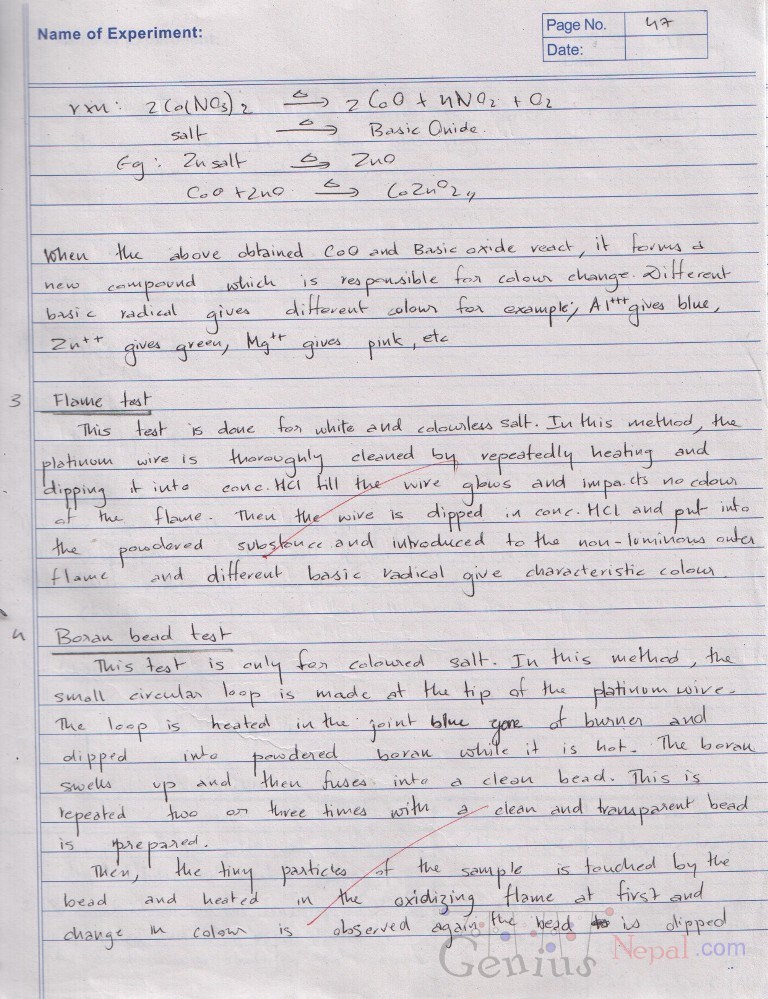 Name of Experiment:
Page No. 47
Date:
rxn: 2Co(NO3)2 Δ→ 2CoO + 4NO2 + O2
salt Δ→ Basic Oxide.
Eg: Zn salt Δ→ ZnO
CoO + ZnO Δ→ CoZnO2 "
When the above obtained CoO and Basic oxide react, it forms a
new compound which is responsible for colour change. Different
basic radical gives different colour for example; Al+++ gives blue,
Zn++ gives green, Mg++ gives pink, etc
3 Flame test
This test is done for white and colourless salt. In this method, the
platinum wire is thoroughly cleaned by repeatedly heating and
dipping it into conc. HCl till the wire glows and imparts no colour
at the flame. Then the wire is dipped in conc. HCl and put into
the powdered substance and introduced to the non-luminous outer
flame and different basic radical give characteristic colour.
4 Borax bead test
This test is only for coloured salt. In this method, the
small circular loop is made at the tip of the platinum wire.
The loop is heated in the joint blue zone of burner and
dipped into powdered borax while it is hot. The borax
swells up and then fuses into a clean bead. This is
repeated two or three times with a clean and transparent bead
is prepared.
Then, the tiny particles of the sample is touched by the
bead and heated in the oxidizing flame at first and
change in colour is observed again the bead is dipped
Genius Nepal.com